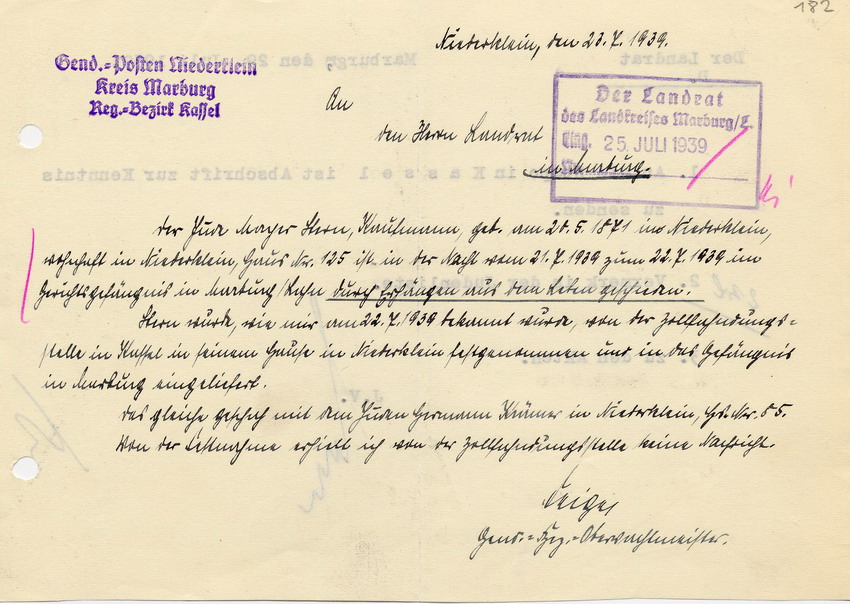 182
Niederklein, den 23.7.1939.
Gend.-Posten Niederklein
Kreis Marburg
Reg.-Bezirk Kassel
An
den Herrn Landrat
in Marburg.
Der Landrat
des Landkreises Marburg/L.
Eing. 25. JULI 1939
Der Jude Mayer Stern, Kaufmann, geb. am 20.5.1871 in Niederklein,
wohnhaft in Niederklein, Haus Nr. 125 ist in der Nacht vom 21.7.1939 zum 22.7.1939 im
Gerichtsgefängnis in Marburg/Lahn durch Erhängen aus dem Leben geschieden.
Stern wurde, wie mir am 22.7.1939 bekannt wurde, von der Zollfahndungs-
stelle in Kassel in seinem Hause in Niederklein festgenommen und in das Gefängnis
in Marburg eingeliefert.
Das gleiche geschah mit dem Juden Hermann in Niederklein, Hs. Nr. 55.
Von der Festnahme erhielt ich von der Zollfahndungsstelle keine Nachricht.
Gend.-Bez.-Oberwachtmeister.